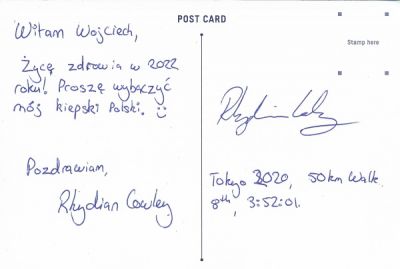 POST CARD
Stamp here
Witam Wojciech,
Życę zdrowia w 2022
roku! Proszę wybaczyć
mój kiepski Polski.
Pozdrawiam,
Rhydian Cowley
Rhydian Cowley
Tokyo 2020, 50km Walk.
8th, 3:52:01.